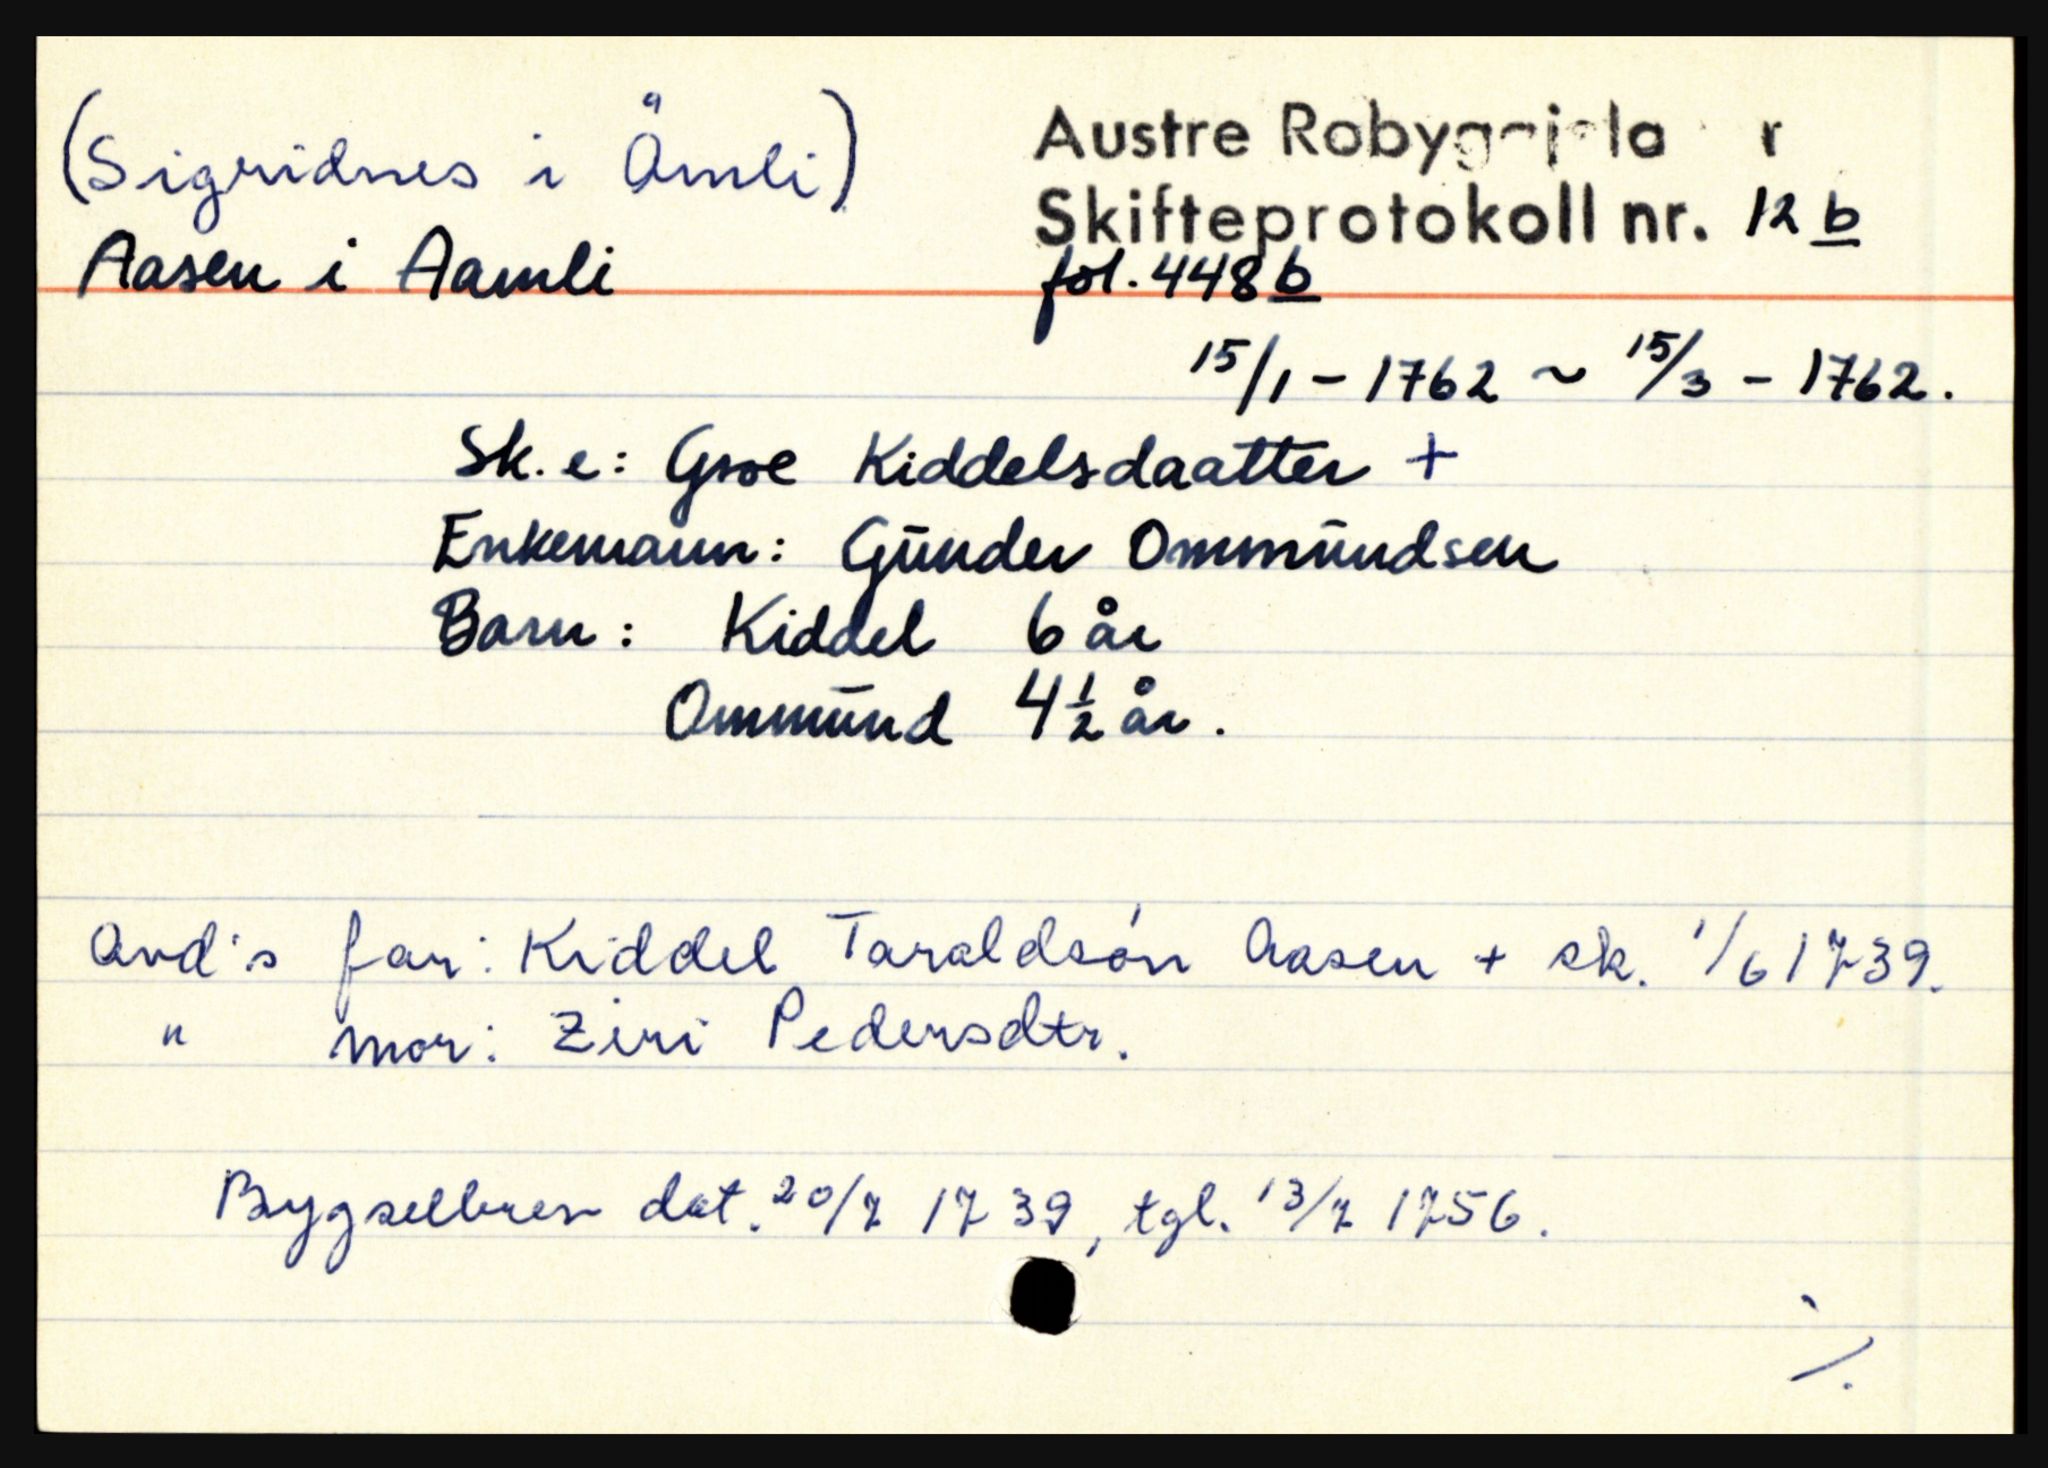 (Sigridnes i Åmli)
Aasen i Aamli
Austre Robyggjela r
Skifteprotokoll nr. 12 b
fol. 448 b
15/1 - 1762 ~ 15/3 - 1762.
Sk. e: Groe Kiddelsdaatter +
Enkemann: Gūnder Ommūndsen
Barn: Kiddel 6 år
Ommūnd 4 ½ år.
Avd's far: Kiddel Taraldsón Aasen + sk. 1/6 1739.
" mor: Ziri Pedersdtr.
Bygselbrev dat. 20/7 1739, tgl. 13/7 1756.
·/.